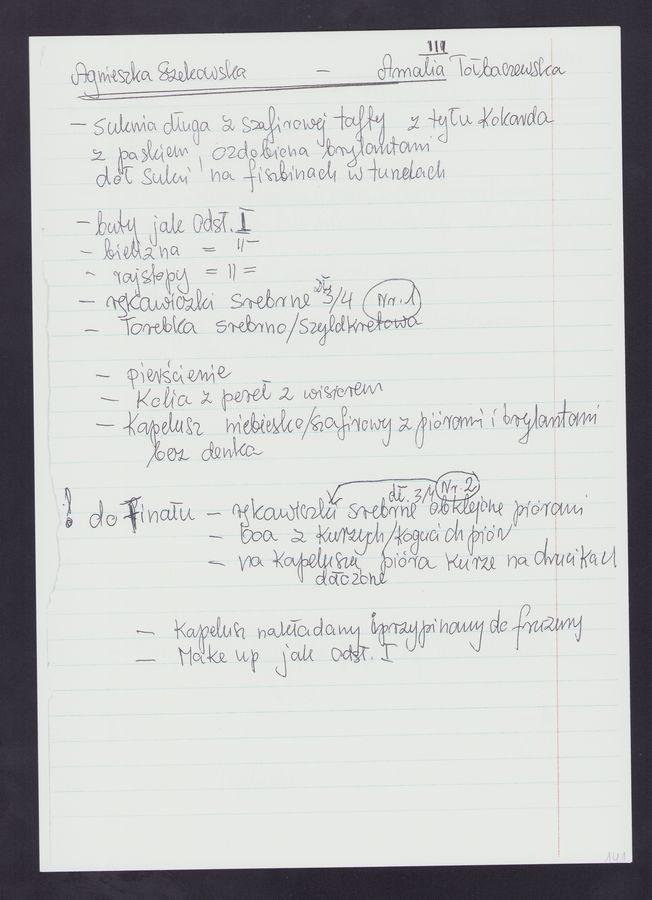 III
Agnieszka Szekowska – Amalia Tołbaczewska
– suknia długa z szafirowej tafty z tyłu kokarda
z paskiem, ozdobiona brylantami
dół sukni na fiszbinach w tunelach
– buty jak Odsł. I
– bielizna = 11 –
– rajstopy = 11 =
– rękawiczki srebrne dł. 3/4 Nr. 1
– Torebka srebrno/szyldkretowa
– pierścienie
– Kolia z pereł z wisiorem
– Kapelusz niebiesko/szafirowy z piórami i brylantami
bez denka
! do Finału – rękawiczki srebrne dł. 3/4 Nr. 2 obklejone piórami
– boa z kurzych/kogucich piór
– na kapeluszu pióra kurze na drucikach
dołączone
– Kapelusz nakładany i przypinany do fryzury
– Make up jak Odsł. I
141